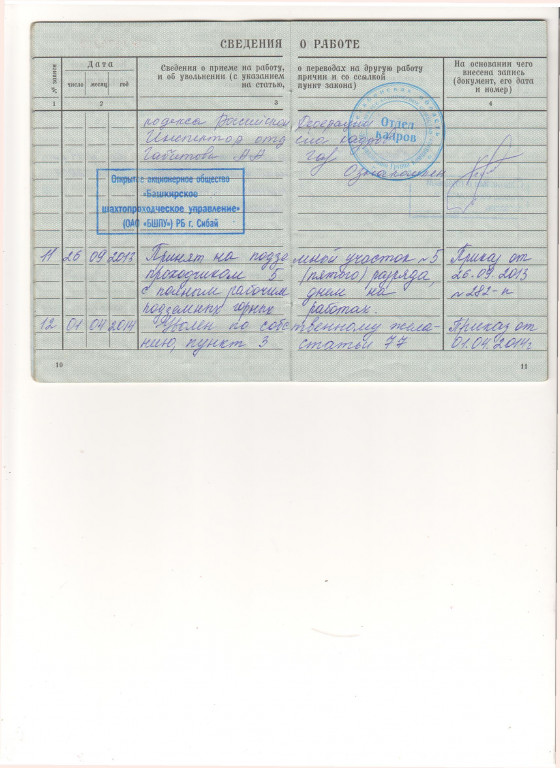 СВЕДЕНИЯ О РАБОТЕ
№ записи
Дата
число месяц год
Сведения о приеме на работу, о переводах на другую работу
и об увольнении (с указанием причин и со ссылкой
на статью, пункт закона)
На основании чего
внесена запись
(документ, его дата
и номер)
1 2 3 4
кодекса Российской Федерации
Инспектор отд
Габитова
Ознакомлен
Отдел
кадров
Открытое акционерное общество
«Башкирское
шахтопроходческое управление»
(ОАО «БШПУ») РБ г. Сибай
11 26 09 2013 Принят на подземной участок №5 Приказ от
проходчиком 5 (пятого) разряда 26.09.2013
с полным рабочим днем на №282-п
подземных горных работах.
12 01 04 2014 Уволен по собственному жела- Приказ от
нию, пункт 3 статьи 77 01.04.2014г
10 11